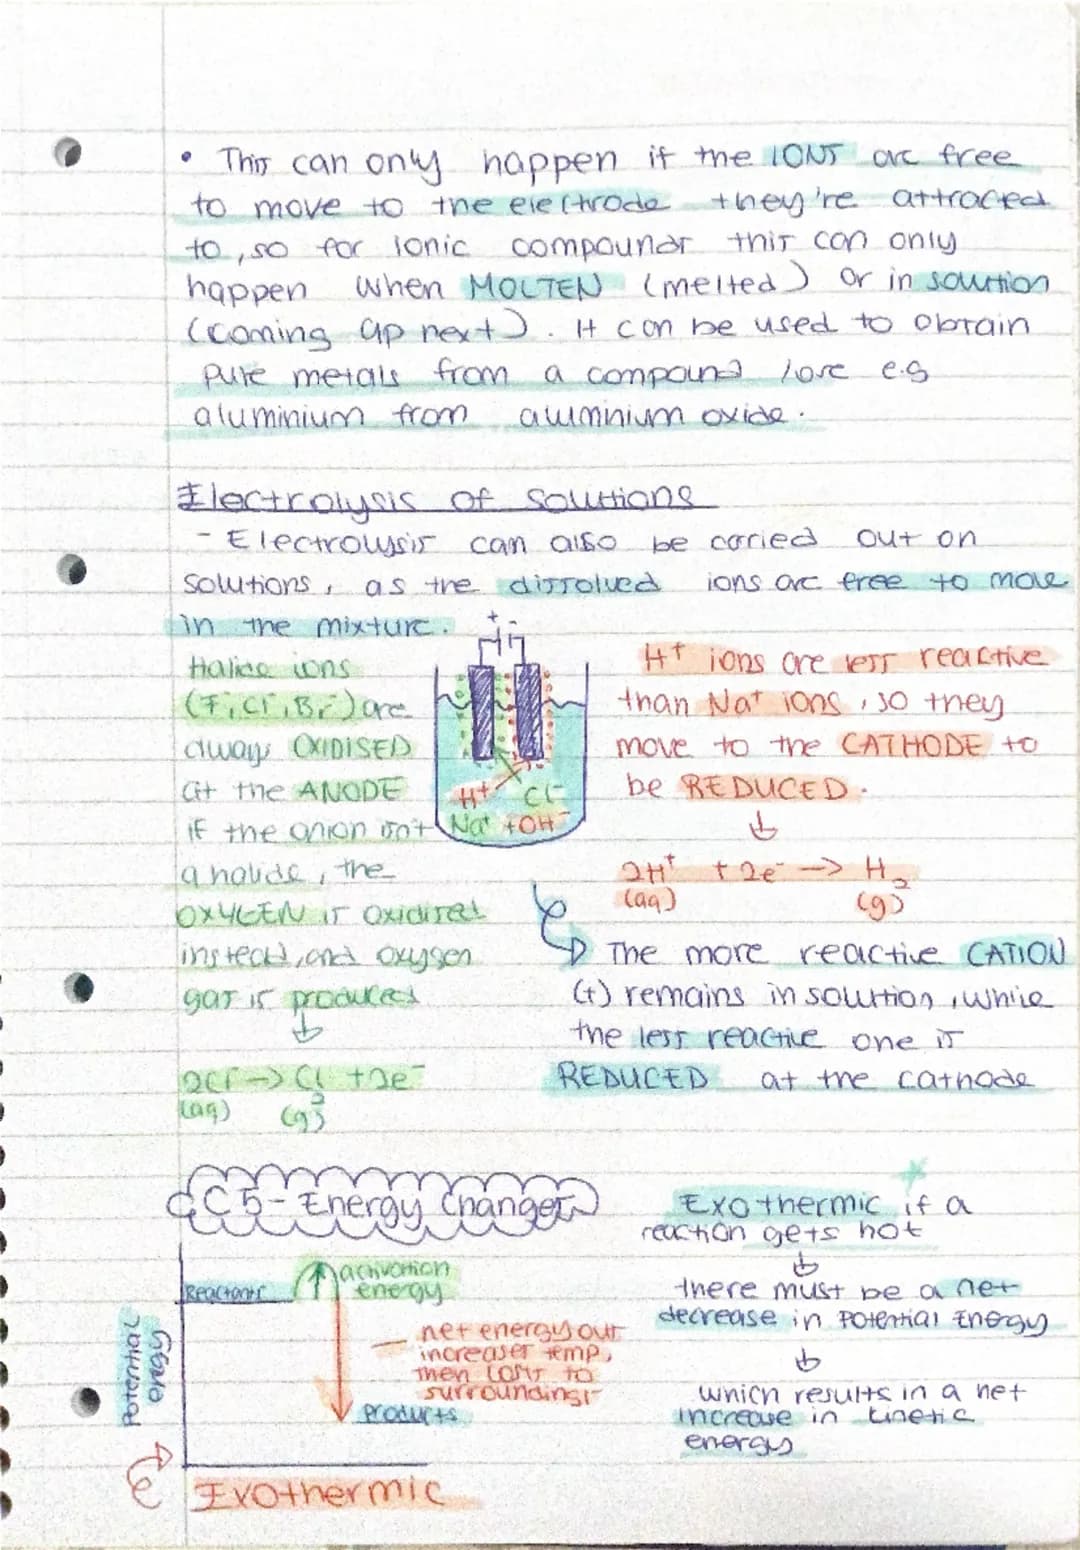 • This can only happen if the IONS are free
to move to the electrode they're attraced
to, so for ionic compounds this can only
happen when MOLTEN (melted) or in solution
(coming up next). It can be used to obtain
pure metals from a compound /ore e.g
aluminium from aluminium oxide.
Electrolysis of solutions
- Electrolysis can also be carried out on
solutions, as the dissolved ions are free to move
in the mixture.
+ -
Halide ions
(F, Cl, Br) are
always OXIDISED
at the ANODE
if the anion isn't
a halide, the
OXYGEN is oxidised
instead, and oxygen
gas is produced
2Cl⁻ -> Cl₂ + 2e⁻
(aq) (g)
H⁺ Cl⁻
Na⁺ + OH⁻
H⁺ ions are less reactive
than Na⁺ ions, so they
move to the CATHODE to
be REDUCED.
2H⁺ + 2e⁻ -> H₂
(aq) (g)
The more reactive CATION
(+) remains in solution, while
the less reactive one is
REDUCED at the cathode
C5 - Energy Changes
Reactants
activation
energy
net energy out
increases temp,
then lost to
surroundings
products
potential
energy
Exothermic
Exothermic if a
reaction gets hot
there must be a net
decrease in Potential Energy
which results in a net
increase in kinetic
energy